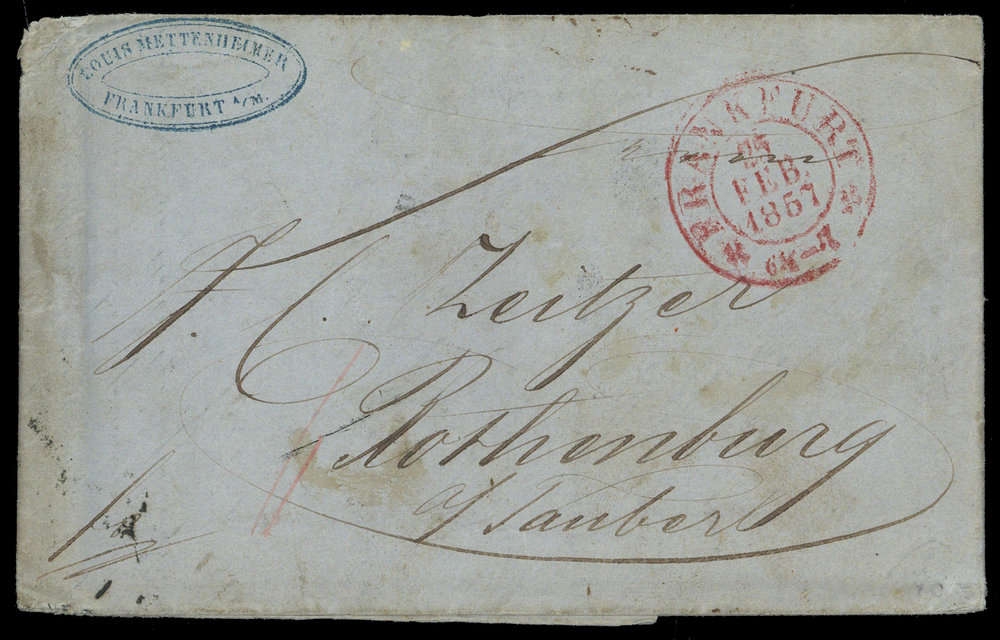 LOUIS METTENHEIMER
FRANKFURT A/M.
FRANKFURT
FEB.
1857
F. C. Zeitzer
Rothenburg
a/Tauber